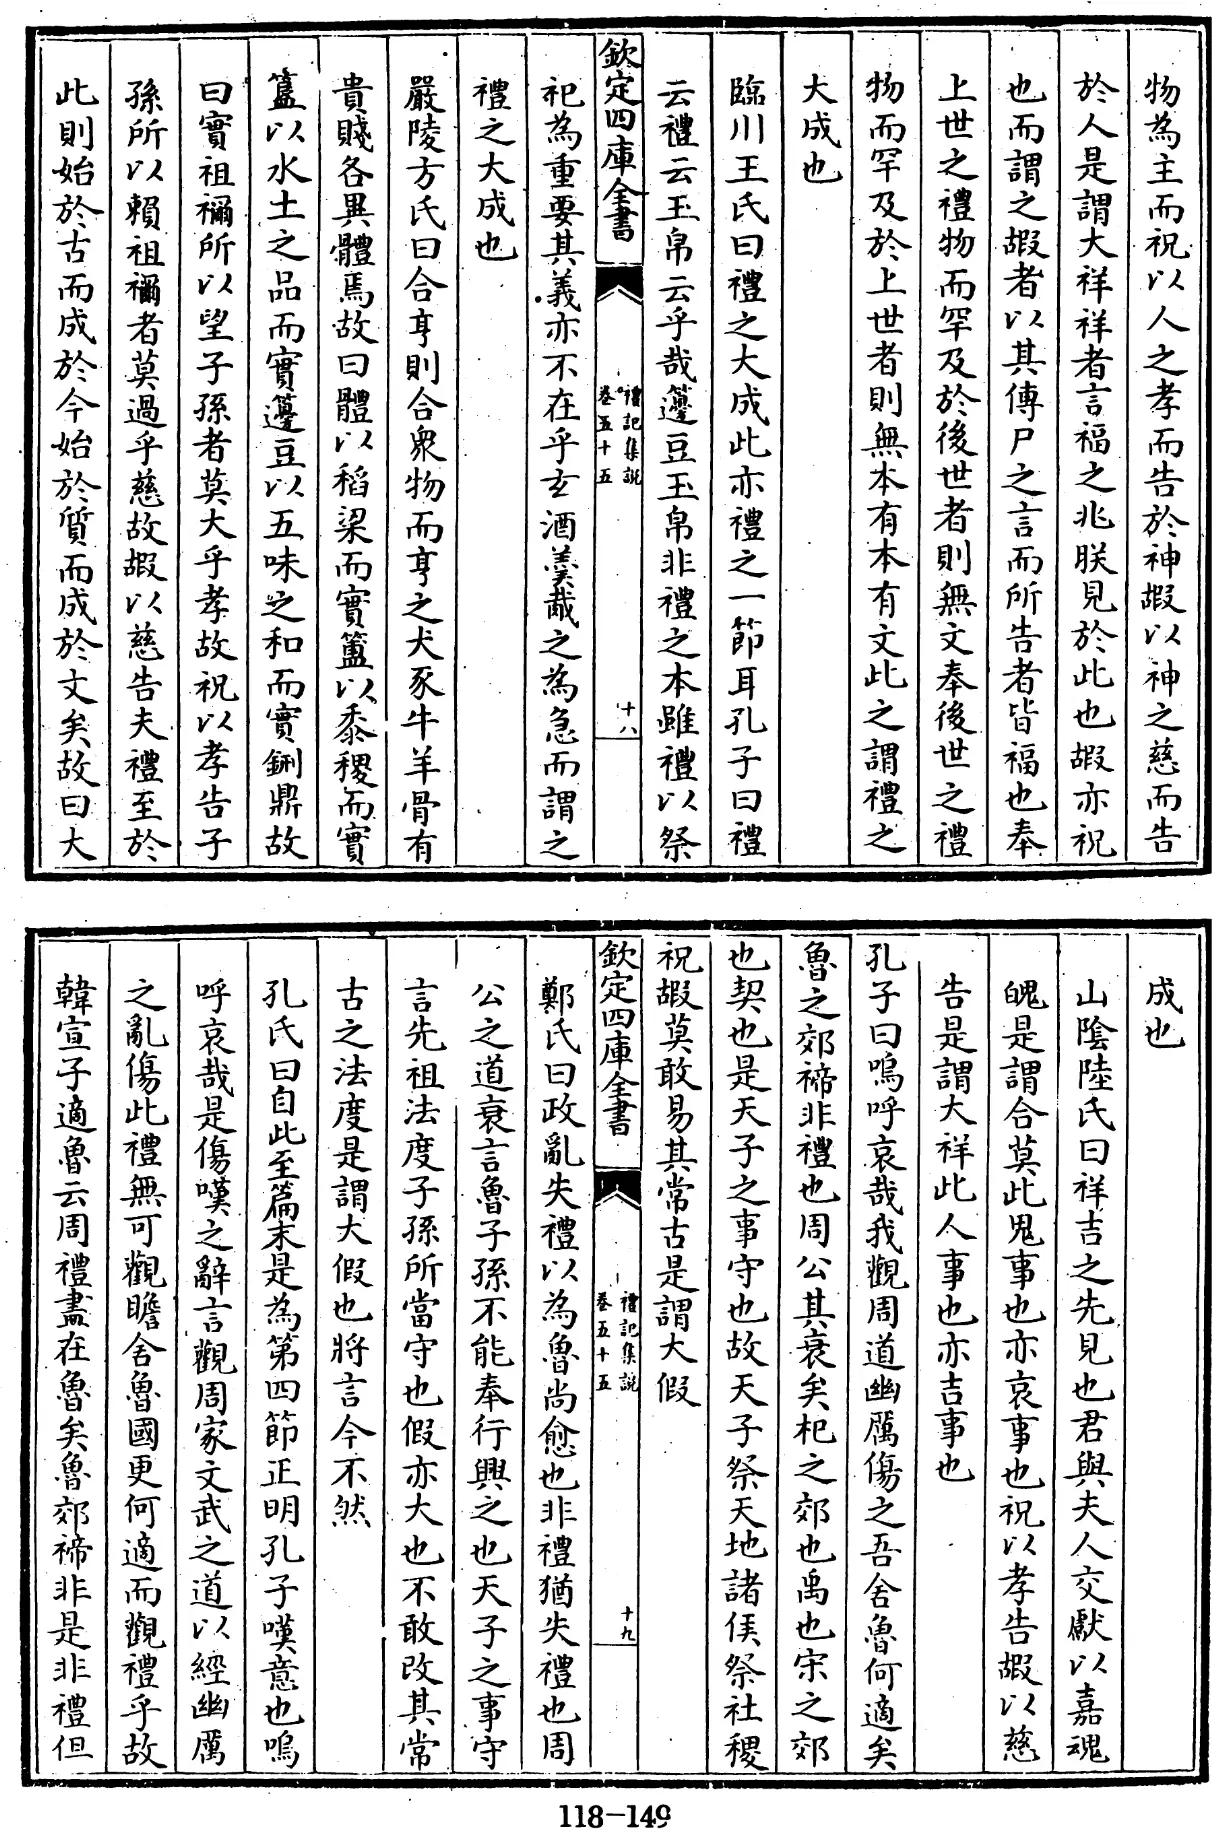 物為主而祝以人之孝而告於神嘏以神之慈而告
於人是謂大祥祥者言福之兆朕見於此也嘏亦祝
也而謂之嘏者以其傳尸之言而所告者皆福也奉
上世之禮物而罕及於後世者則無文奉後世之禮
物而罕及於上世者則無本有本有文此之謂禮之
大成也
臨川王氏曰禮之大成此亦禮之一節耳孔子曰禮
云禮云玉帛云乎哉籩豆玉帛非禮之本雖禮以祭
欽定四庫全書
禮記集說
卷五十五
十八
祀為重要其義亦不在乎玄酒羹胾之為急而謂之
禮之大成也
嚴陵方氏曰合亨則合衆物而亨之犬豕牛羊骨有
貴賤各異體焉故曰體以稻粱而實簠以黍稷而實
簋以水土之品而實籩豆以五味之和而實鉶鼎故
曰實祖禰所以望子孫者莫大乎孝故祝以孝告子
孫所以賴祖禰者莫過乎慈故嘏以慈告夫禮至於
此則始於古而成於今始於質而成於文矣故曰大
成也
山陰陸氏曰祥吉之先見也君與夫人交獻以嘉魂
魄是謂合莫此鬼事也亦哀事也祝以孝告嘏以慈
告是謂大祥此人事也亦吉事也
孔子曰嗚呼哀哉我觀周道幽厲傷之吾舍魯何適矣
魯之郊禘非禮也周公其衰矣杞之郊也禹也宋之郊
也契也是天子之事守也故天子祭天地諸侯祭社稷
祝嘏莫敢易其常古是謂大假
欽定四庫全書
禮記集說
卷五十五
十九
鄭氏曰政亂失禮以為魯尚愈也非禮猶失禮也周
公之道衰言魯子孫不能奉行興之也天子之事守
言先祖法度子孫所當守也假亦大也不敢改其常
古之法度是謂大假也將言今不然
孔氏曰自此至篇末是為第四節正明孔子嘆意也嗚
呼哀哉是傷嘆之辭言觀周家文武之道以經幽厲
之亂傷此禮無可觀瞻舍魯國更何適而觀禮乎故
韓宣子適魯云周禮盡在魯矣魯郊禘非是非禮但
118-149